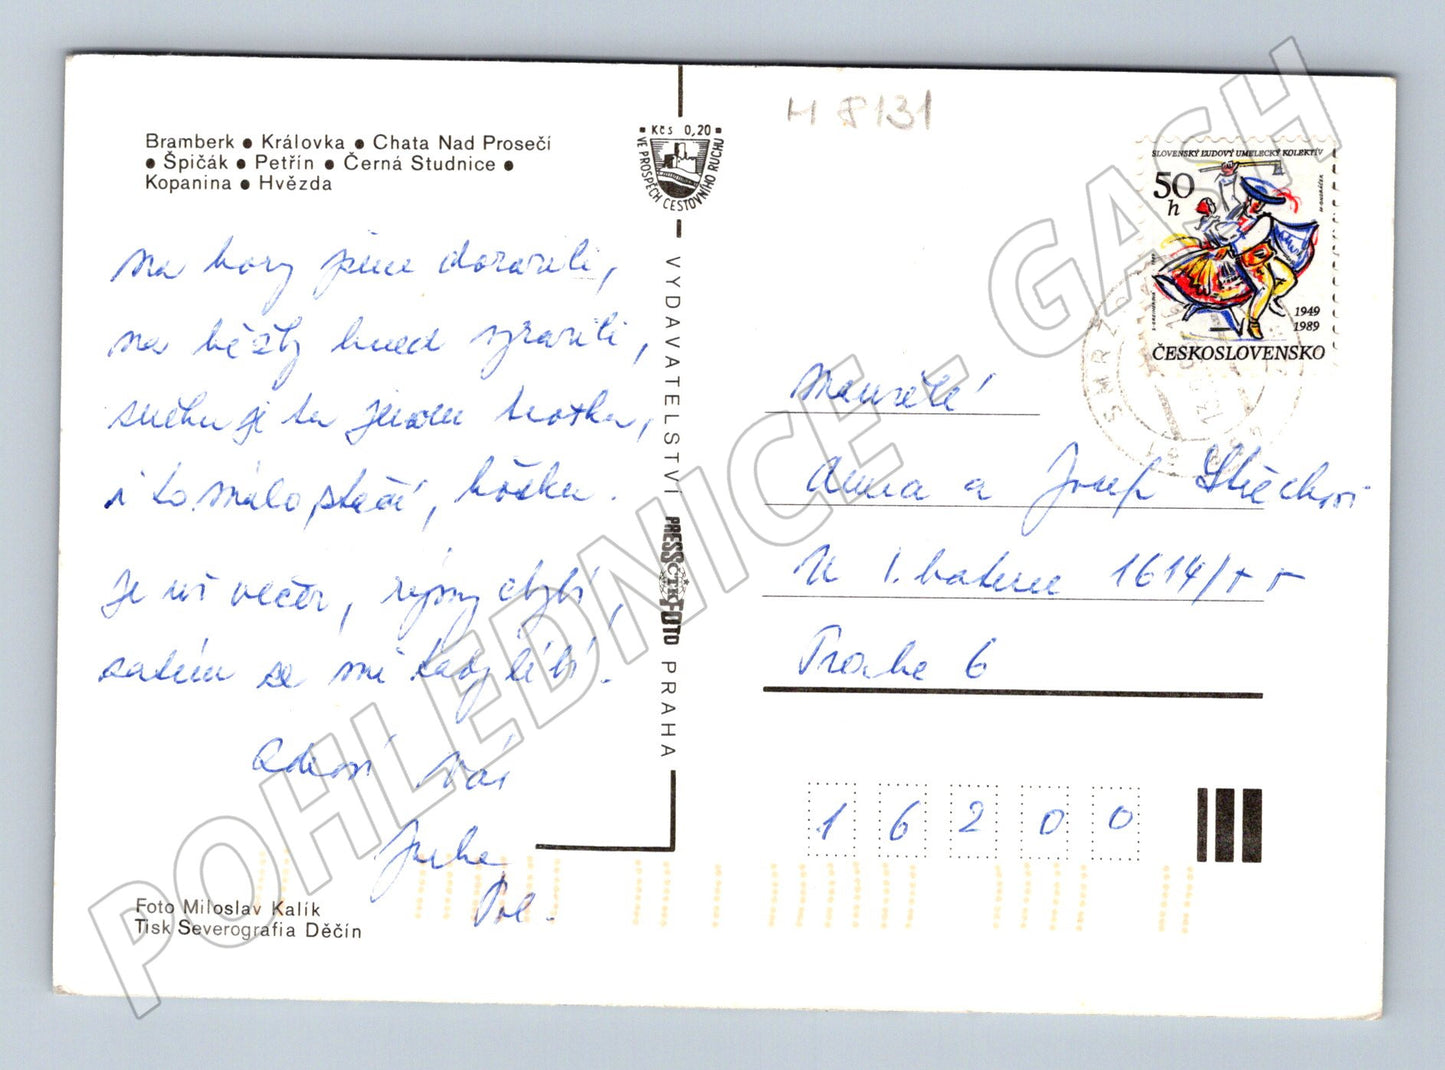 Bramberk • Královka • Chata Nad Prosečí
• Špičák • Petřín • Černá Studnice •
Kopanina • Hvězda
na hory jsme dorazili,
na běžky hned vyrazili,
sněhu je tu jenom trošku,
i to málo stačí, hošku.
Je už večer, rýmy chybí
zatím se mi tady líbí!
Zdraví Vás
Foto Miloslav Kalík
Tisk Severografia Děčín
• Kčs 0,20 •
VE PROSPĚCH CESTOVNÍHO RUCHU
VYDAVATELSTVÍ PRESSFOTO PRAHA
ČTK
M 8131
SLOVENSKÝ ĽUDOVÝ UMELECKÝ KOLEKTÍV
50
h
1949
1989
ČESKOSLOVENSKO
SMRŽ
Manželé
Anna a Josef
U 1. baterie 1614/
Praha 6
16200
POHLEDNICE - GASH